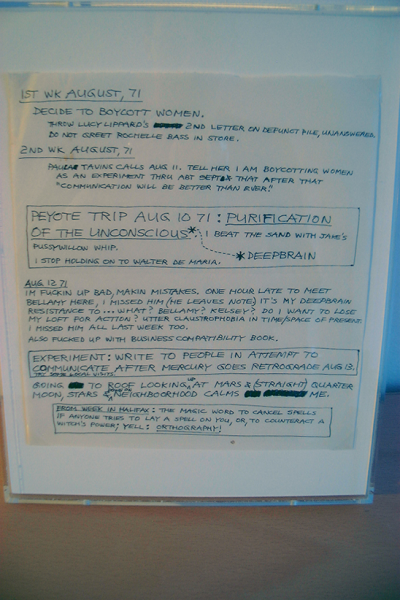 1ST WK AUGUST, 71
DECIDE TO BOYCOTT WOMEN.
THROW LUCY LIPPARD'S 2ND LETTER ON DEFUNCT PILE, UNANSWERED.
DO NOT GREET ROCHELLE BASS IN STORE.
2ND WK AUGUST, 71
PAULA TAVINS CALLS AUG 11. TELL HER I AM BOYCOTTING WOMEN
AS AN EXPERIMENT THRU ABT SEPT & THAT AFTER THAT
"COMMUNICATION WILL BE BETTER THAN EVER."
PEYOTE TRIP AUG 10 71: PURIFICATION
OF THE UNCONSCIOUS* I BEAT THE SAND WITH JANE'S
PUSSYWILLOW WHIP. *DEEPBRAIN
I STOP HOLDING ON TO WALTER DE MARIA.
AUG 12 71
IM FUCKIN UP BAD, MAKIN MISTAKES. ONE HOUR LATE TO MEET
BELLAMY HERE, I MISSED HIM (HE LEAVES NOTE) IT'S MY DEEPBRAIN
RESISTANCE TO...WHAT? BELLAMY? KELSEY? DO I WANT TO LOSE
MY LOFT FOR ACTION? UTTER CLAUSTROPHOBIA IN TIME/SPACE OF PRESENT.
I MISSED HIM ALL LAST WEEK TOO.
ALSO FUCKED UP WITH BUSINESS COMPATIBILITY BOOK.
EXPERIMENT: WRITE TO PEOPLE IN ATTEMPT TO
COMMUNICATE AFTER MERCURY GOES RETROGRADE AUG 13.
GOING TO ROOF LOOKING UP AT MARS & (STRAIGHT) QUARTER
MOON, STARS & NEIGHBOURHOOD CALMS ME.
FROM WEEK IN HALIFAX: THE MAGIC WORD TO CANCEL SPELLS
IF ANYONE TRIES TO LAY A SPELL ON YOU, OR, TO COUNTERACT A
WITCH'S POWER; YELL: ORTHOGRAPHY!